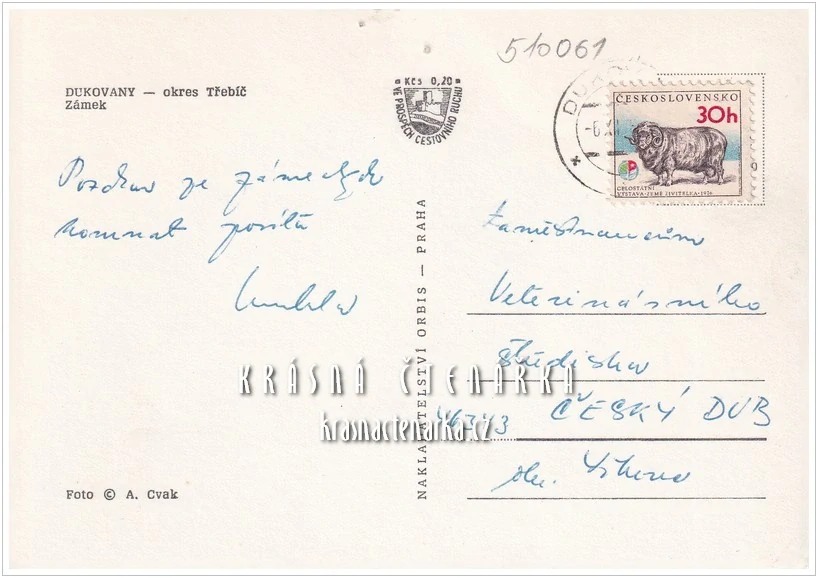 510061
DUKOVANY — okres Třebíč
Zámek
Kčs 0,20
VE PROSPĚCH CESTOVNÍHO RUCHU
ČESKOSLOVENSKO
30h
CELOSTÁTNÍ
VÝSTAVA·ZEMĚ ŽIVITELKA·1976
Pozdrav ze zámeckých
komnat posílá
NAKLADATELSTVÍ ORBIS — PRAHA
Zaměstnancům
Veterinárního
střediska
46343 ČESKÝ DUB
okr. Liberec
KRÁSNÁ ČTENÁŘKA
krasnactenarka.cz
Foto © A. Cvak